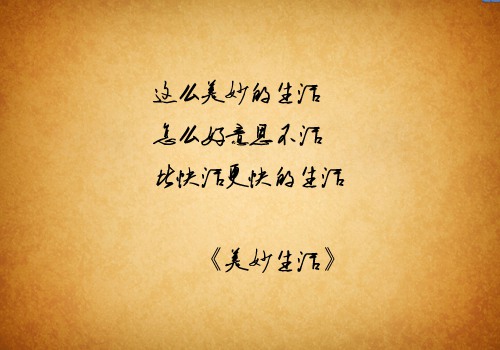 这么美妙的生活
怎么好意思不活
比快活更快的生活
《美妙生活》